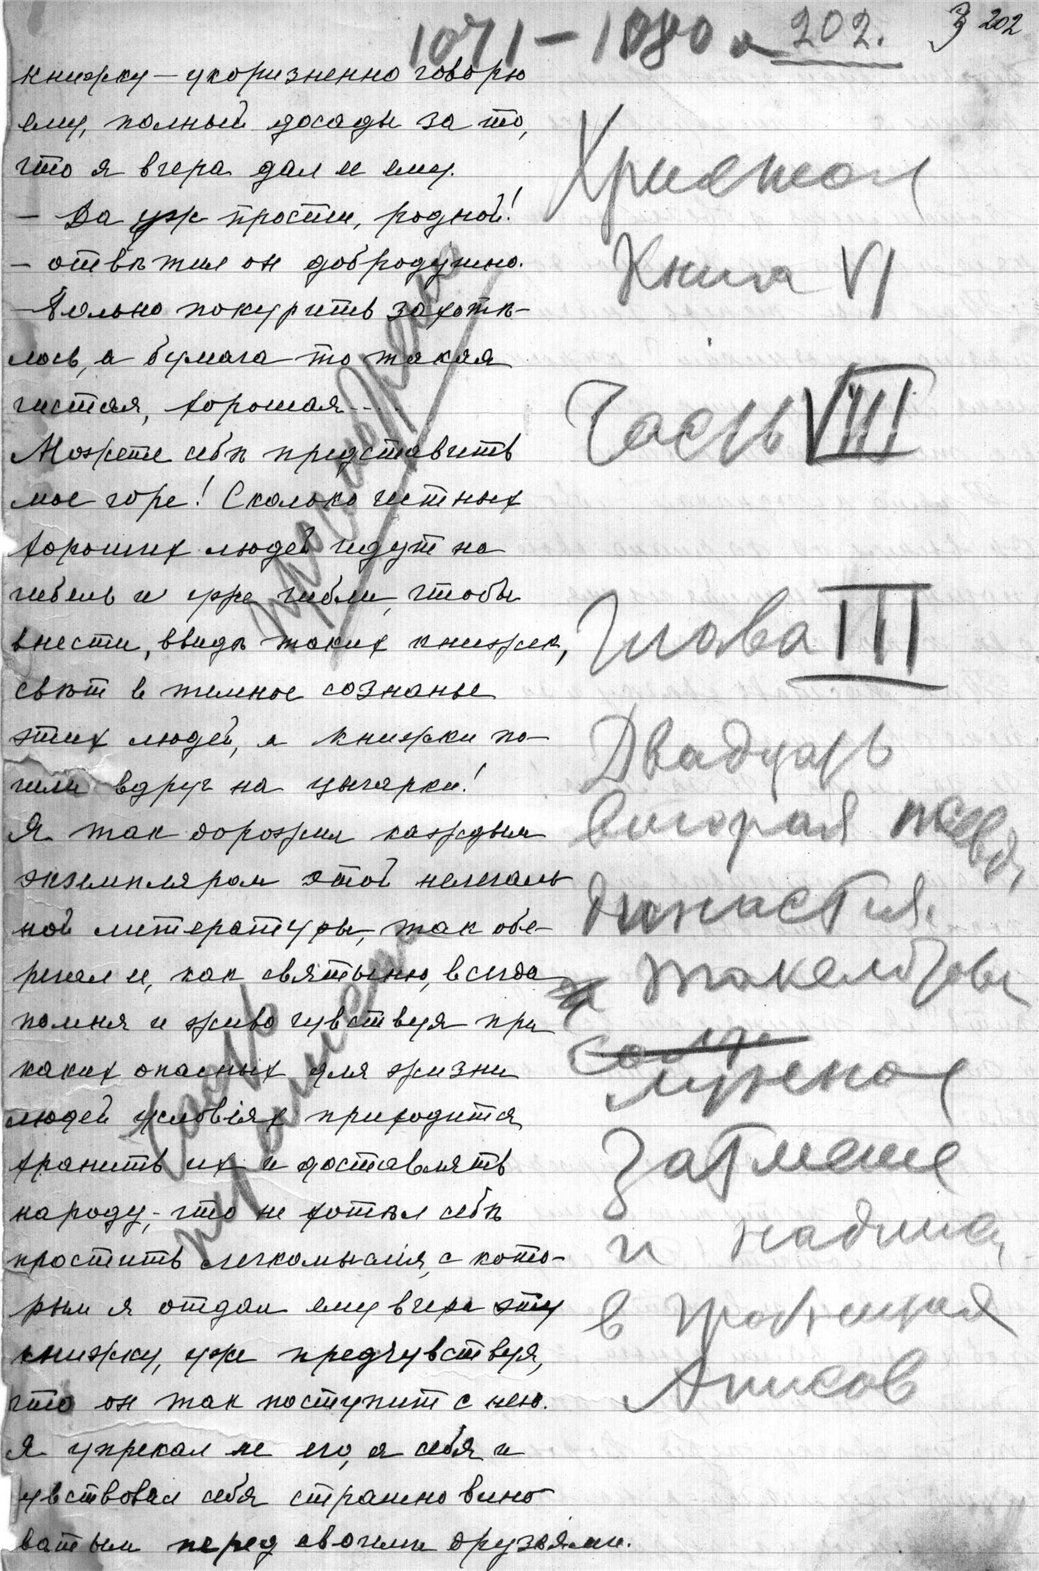 1071-1080 202. 202
книжку – укоризненно говорю
ему, полный досады за то,
что я вчера дал ее ему.
– Да уж прости, родной!
– отвѣтил он добродушно.
– Больно покурить захотѣ-
лось, а бумага то такая
чистая, хорошая....
Можете себѣ представить
мое горе! Сколько честных
хороших людей идут на
гибель и уже гибли, чтобы
внести, ввидѣ таких книжек,
свѣт в темное сознанье
этих людей, а книжки по-
шли вдруг на цыгарки!
Я так дорожил каждым
экземпляром этой нелегаль
ной литературы, так обе-
регал ее, как святыню, всегда
помня и живо чувствуя при
каких опасных для жизни
людей условіях приходится
хранить их и доставлять
народу, – что не хотѣл себѣ
простить легкомыслія, с кото-
рым я отдал ему вчера эту
книжку, уже предчувствуя,
что он так поступит с нею.
Я упрекал не его, а себя и
чувствовал себя страшно вино-
ватым перед своими друзьями.
Христос
Книга VI
Часть VIII
Глава III
Двадцать
вторая псевдо
династия.
Такелотовы
лунное
затмение
и надписи
в гробницах
Аписов
проверено
Часть